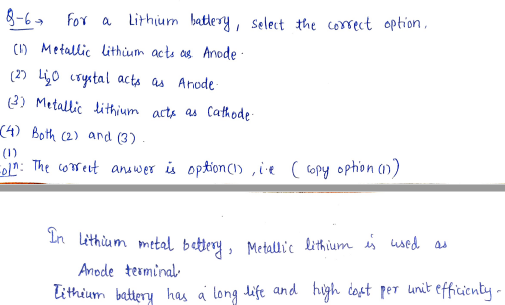 Q-6→ For a Lithium battery, select the correct option.
(1) Metallic lithium acts as Anode.
(2) Li2O crystal acts as Anode.
(3) Metallic lithium acts as Cathode.
(4) Both (2) and (3).
(1)
Solⁿ: The correct answer is option(1), i.e (copy option (1))
In Lithium metal battery, Metallic lithium is used as
Anode terminal.
Lithium battery has a long life and high cost per unit efficienty.